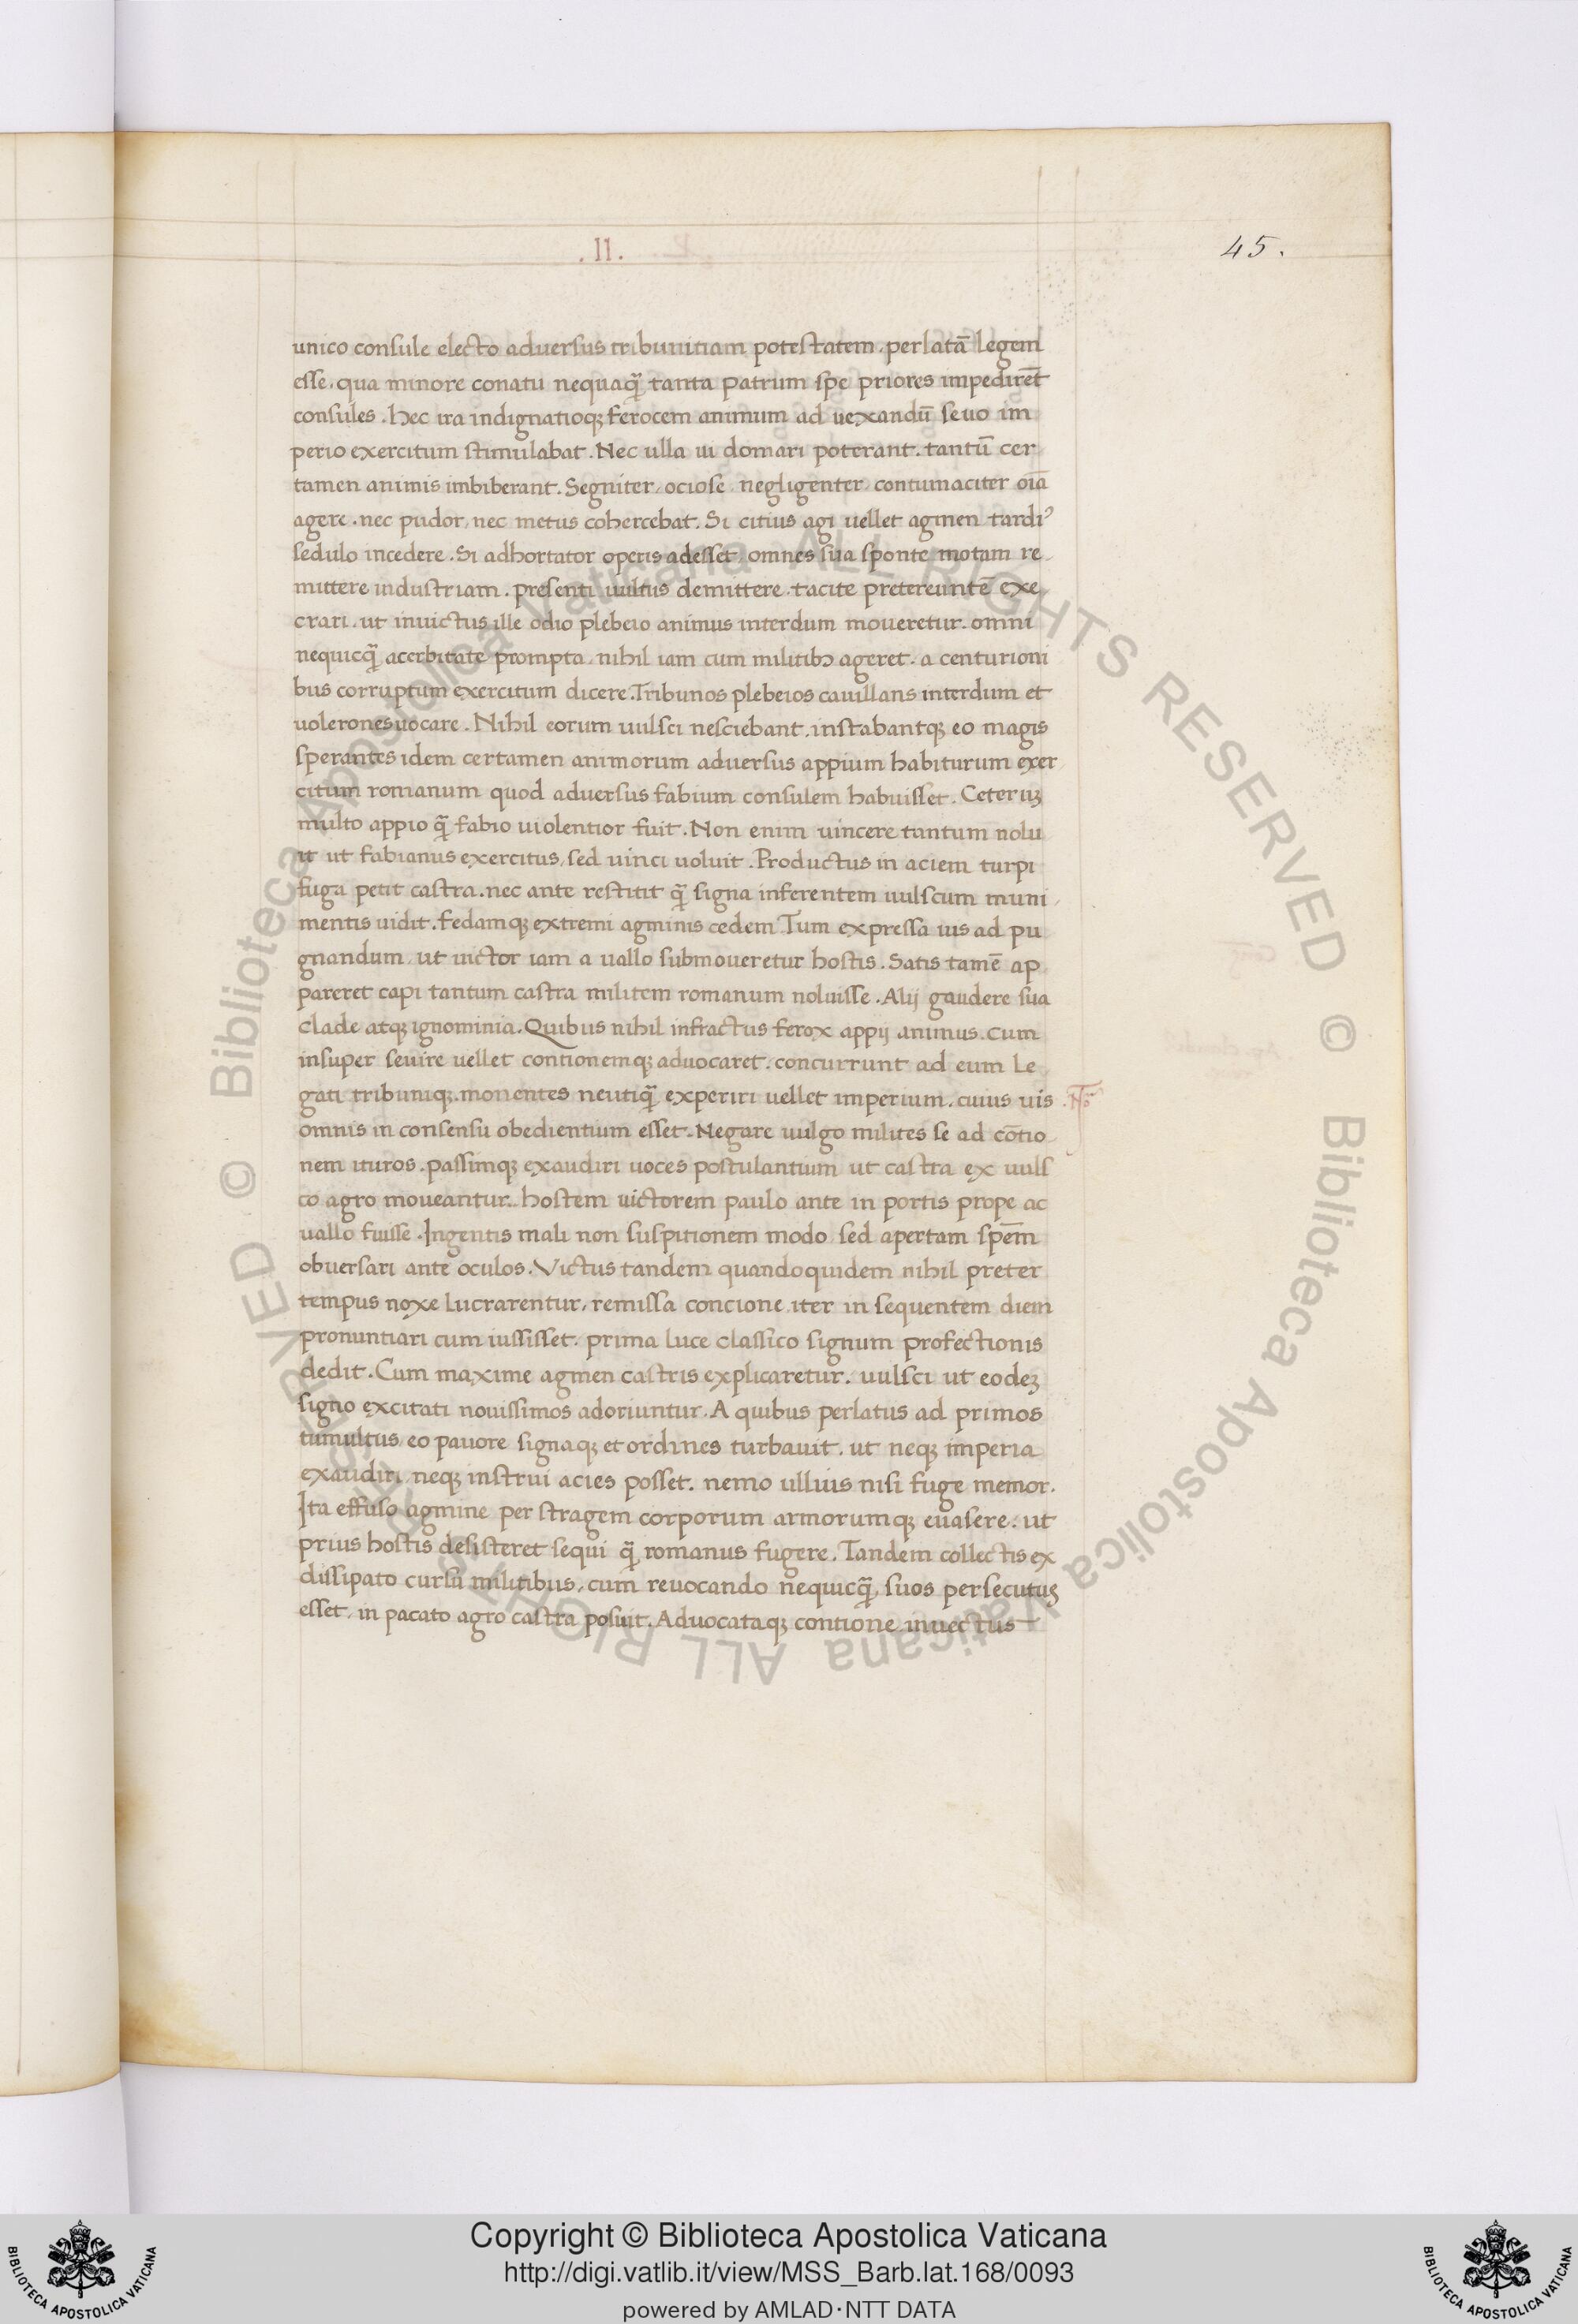 .II.
45.
unico consule electo adversus tribunitiam potestatem. perlatā legem
esse. qua minore conatu nequaq̄ tanta patrum spe priores impedirēt
consules. Hec ira indignatioqꝫ ferocem animum ad uexandū seuo im
perio exercitum stimulabat. Nec ulla ui domari poterant. tantū cer
tamen animis imbiberant. Segniter, ociose negligenter, contumaciter oīa
agere. nec pudor, nec metus cohercebat. Si citius agi uellet agmen tardiꝰ
sedulo incedere. Si adhortator operis adesset, omnes sua sponte motam re
mittere industriam. presenti uultus demittere. tacite pretereuntē exe
crari. ut inuictus ille odio plebeio animus interdum moueretur. omni
nequicq̄ acerbitate prompta, nihil iam cum militibꝫ ageret. a centurioni
bus corruptum exercitum dicere. Tribunos plebeios cauillans interdum et
uolerones uocare. Nihil eorum uulsci nesciebant. instabantqꝫ eo magis
sperantes idem certamen animorum aduersus appium habiturum exer
citum romanum quod aduersus fabium consulem habuisset. Ceterūꝫ
multo appio q̄ fabio uiolentior fuit. Non enim uincere tantum nolu
it ut fabianus exercitus, sed uinci uoluit. Productus in aciem turpi
fuga petit castra. nec ante restitit q̄ signa inferentem uulscum muni
mentis uidit. fedamqꝫ extremi agminis cedem Tum expressa uis ad pu
gnandum, ut uictor iam a uallo submoueretur hostis. Satis tamē ap
pareret capi tantum castra militem romanum noluisse. Alij gaudere sua
clade atqꝫ ignominia. Quibus nihil infractus ferox appij animus. cum
insuper seuire uellet contionemqꝫ aduocaret. concurrunt ad eum le
gati tribuniqꝫ. monentes neutiq̄ experiri uellet imperium. cuius uis
.Nō
omnis in consensu obedientium esset. Negare uulgo milites se ad cōtio
nem ituros. passimqꝫ exaudiri uoces postulantium ut castra ex uuls
co agro moueantur.. hostem uictorem paulo ante in portis prope ac
uallo fuisse. Ingentis mali non suspitionem modo, sed apertam spēm
obuersari ante oculos. Victus tandem quandoquidem nihil preter
tempus noxe lucrarentur, remissa concione iter in sequentem diem
pronuntiari cum iussisset. prima luce classico signum profectionis
dedit. Cum maxime agmen castris explicaretur. uulsci ut eodeꝫ
signo excitati nouissimos adoriuntur. A quibus perlatus ad primos
tumultus, eo pauore signaqꝫ et ordines turbauit. ut neqꝫ imperia
exaudiri, neqꝫ instrui acies posset. nemo ullius nisi fuge memor.
Ita effuso agmine per stragem corporum armorumqꝫ euasere. ut
prius hostis desisteret sequi q̄ romanus fugere. Tandem collectis ex
dissipato cursu militibus, cum reuocando nequicq̄ suos persecutuꝫ
esset, in pacato agro castra posuit. Aduocataqꝫ contione inuectus
© Biblioteca Apostolica Vaticana ALL RIGHTS RESERVED © Biblioteca Apostolica Vaticana ALL RIGHTS RESERVED
Copyright © Biblioteca Apostolica Vaticana
http://digi.vatlib.it/view/MSS_Barb.lat.168/0093
powered by AMLAD·NTT DATA
BIBLIOTECA APOSTOLICA VATICANA
BIBLIOTECA APOSTOLICA VATICANA